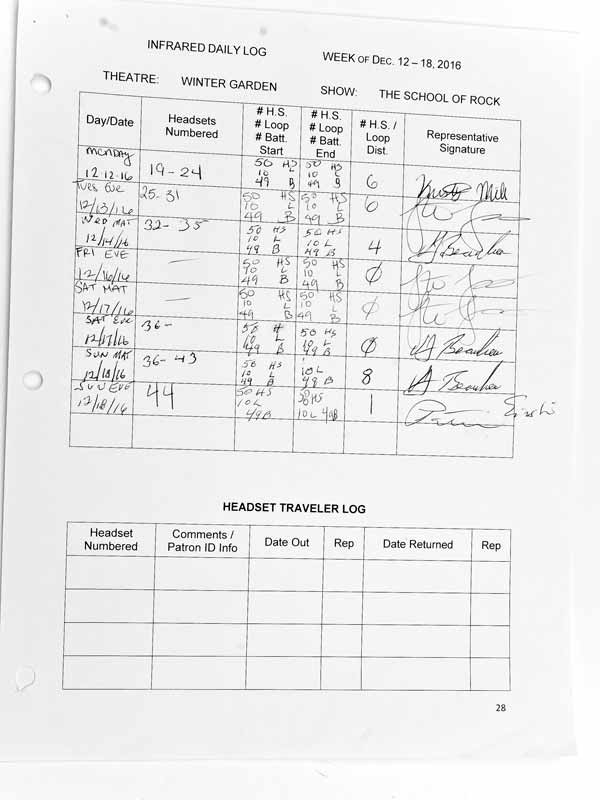 INFRARED DAILY LOG
WEEK OF DEC. 12 – 18, 2016
THEATRE: WINTER GARDEN
SHOW: THE SCHOOL OF ROCK
Day/Date
Headsets Numbered
# H.S.
# Loop
# Batt.
Start
# H.S.
# Loop
# Batt.
End
# H.S. /
Loop
Dist.
Representative
Signature
MONDAY
12.12.16
19 - 24
50 HS
10 L
49 B
50 HS
10 L
49 B
6
Tues Eve
12/13/16
25-31
50 HS
10 L
49 B
50 HS
10 L
49 B
6
WED MAT
12/14/16
32 - 35
50 HS
10 L
49 B
50 HS
10 L
49 B
4
FRI EVE
12/16/16
—
50 HS
10 L
49 B
50 HS
10 L
49 B
Ø
SAT MAT
12/17/16
—
50 HS
10 L
49 B
50 HS
10 L
49 B
Ø
SAT EVE
12/17/16
36-
50 H
10 L
49 B
50 HS
10 L
49 B
Ø
SUN MAT
12/18/16
36 - 43
50 HS
10 L
49 B
10 L
49 B
8
SUN EVE
12/18/16
44
50 HS
10 L
49B
50 HS
10 L 49B
1
HEADSET TRAVELER LOG
Headset
Numbered
Comments /
Patron ID Info
Date Out
Rep
Date Returned
Rep
28